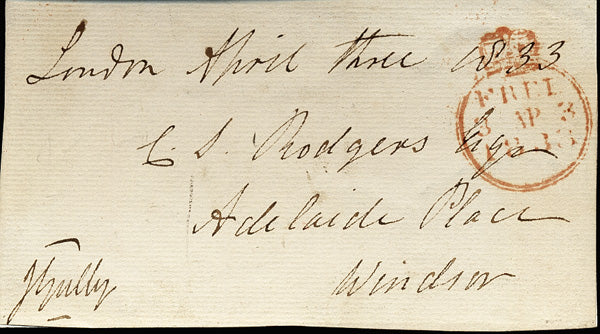 London April three 1833
FREE
3 AP 3
1833
C. S. Rodgers Esqr
Adelaide Place
Windsor
J Gully